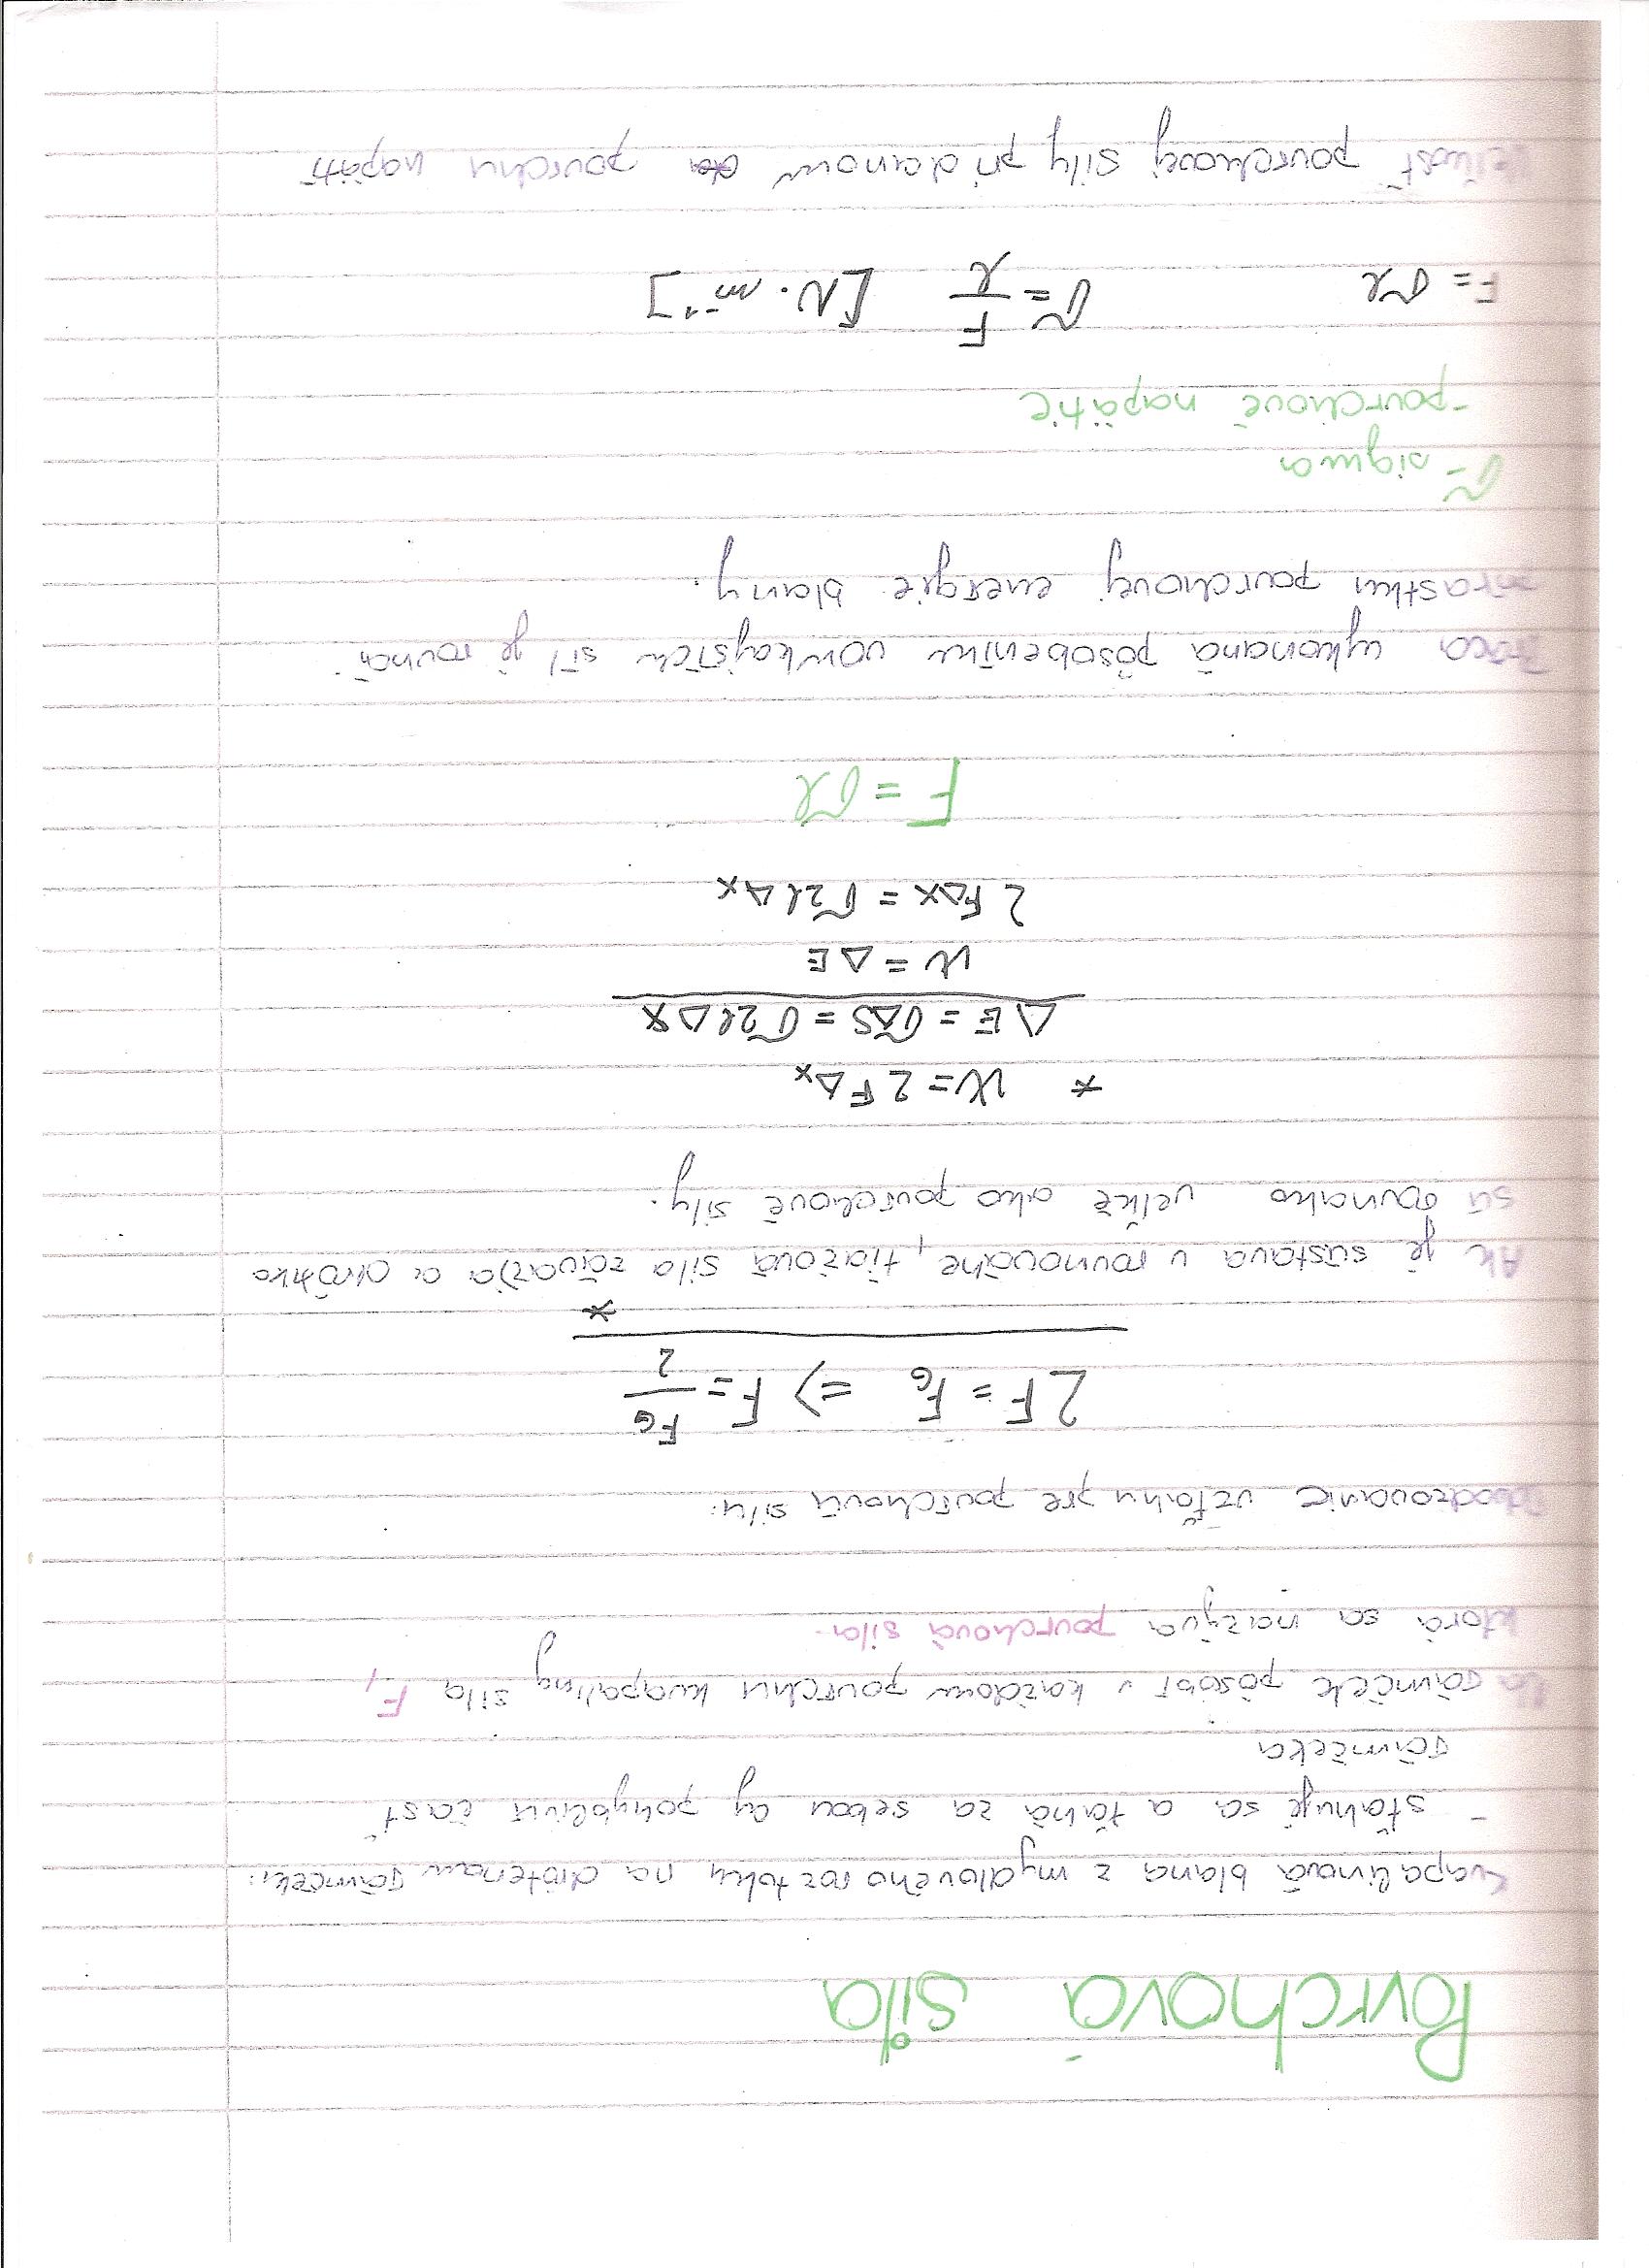 Povrchová sila
kvapalinová blana z mydlového roztoku na drôtenom rámčeku:
- sťahuje sa a ťahá za sebou aj pohyblivú časť
rámčeka
Na rámček pôsobí v každom povrchu kvapaliny sila F,
ktorá sa nazýva povrchová sila.
odvodzovanie vzťahu pre povrchovú silu:
2F = F_G => F = F_G/2
*
Ak je sústava v rovnováhe, tiažová sila závažia a drôtika
sú rovnako veľké ako povrchové sily.
* W = 2FΔx
ΔE = σΔS = σ2lΔx
W = ΔE
2FΔx = σ2lΔx
F = σl
Práca vykonaná pôsobením vonkajších síl je rovná
prírastku povrchovej energie blany.
σ - sigma
- povrchové napätie
F = σl σ = F/l [N.m⁻¹]
Veľkosť povrchovej sily pri danom povrchu napätí